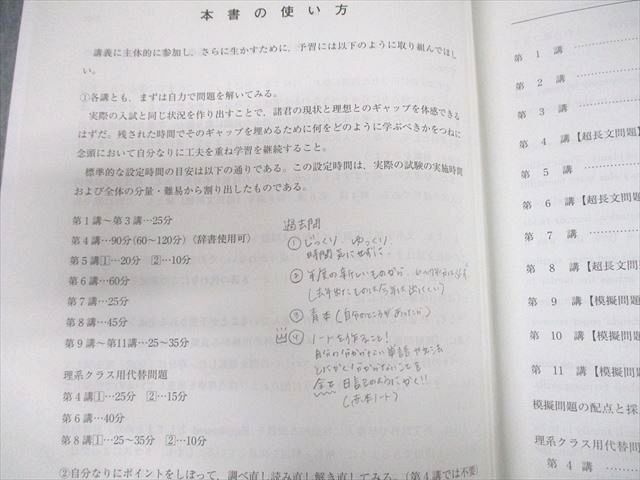 本書の使い方
講義に主体的に参加し、さらに生かすために、予習には以下のように取り組んでほし
い。
①各講とも、まずは自力で問題を解いてみる。
実際の入試と同じ状況を作り出すことで、諸君の現状と理想とのギャップを体感できる
はずだ。残された時間でそのギャップを埋めるために何をどのように学ぶべきかをつねに
念頭において自分なりに工夫を重ね学習を継続すること。
標準的な設定時間の目安は以下の通りである。この設定時間は、実際の試験の実施時間
および全体の分量・難易から割り出したものである。
第1講～第3講…25分
第4講…90分(60～120分)（辞書使用可）
第5講1…20分 2…10分
第6講…60分
第7講…25分
第8講…45分
第9講～第11講…25～35分
理系クラス用代替問題
第4講1…25分 2…15分
第6講…40分
第8講1…25～35分 2…10分
②自分なりにポイントをしぼって、調べ直し読み直し解き直してみる。（第4講では不要）
過去問
① じっくり、ゆっくり、
時間気にせずに。
② 年度の新しいものから、
③ 青本
④ ノートを作ること！
自分の分からない単語や
とにかく分からないことを
全部 日記のようにかく!!
(赤本ノート)
第 1 講
第 2 講
第 3 講
第 4 講【超長文問題
第 5 講
第 6 講【超長文問題
第 7 講
第 8 講【超長文問
第 9 講【模擬問題
第 10 講【模擬問題
第 11 講【模擬問題
模擬問題の配点と採
理系クラス用代替問
第 4 講